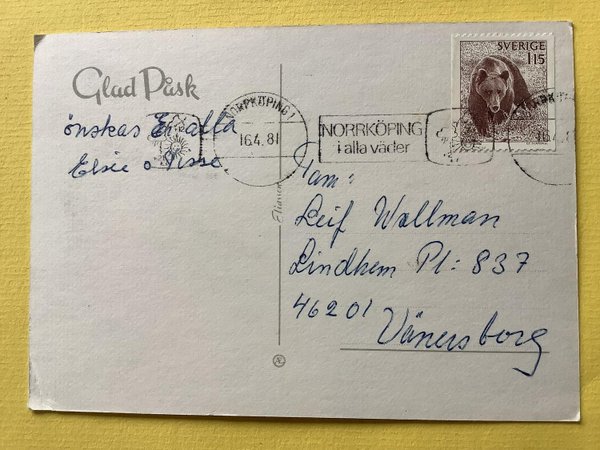 Glad Påsk
önskas Er alla
Elsie o Nisse
NORRKÖPING 1
16.4.81
NORRKÖPING
i alla väder
SVERIGE
115
Fam:
Leif Wallman
Lindhem Pl: 837
46201
Vänersborg